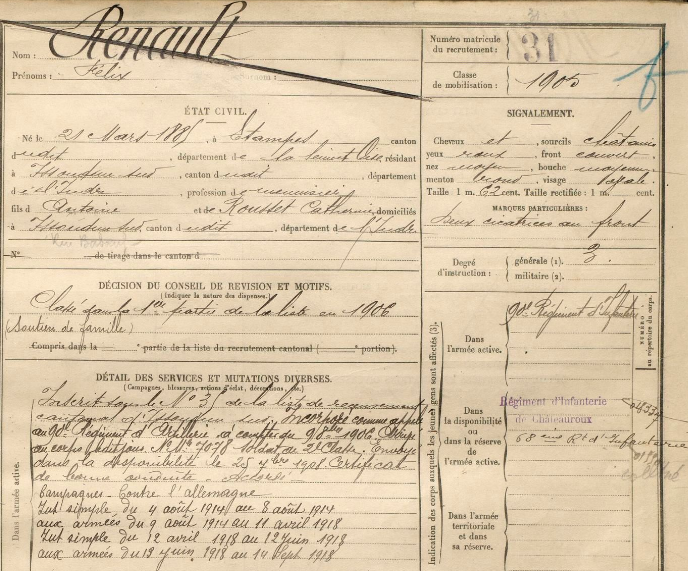 Renault
Nom :
Prénoms : Félix
Numéro matricule du recrutement : 31
Classe de mobilisation : 1905
ÉTAT CIVIL.
Né le 21 Mars 1885, à Etampes canton
dudit, département de la Seine et Oise, résidant
à Issoudun sud, canton dudit département
de l'Indre, profession de
fils d Antoine et de Rousset Catherine, domiciliés
à Issoudun sud canton dudit, département de l'Indre
N° de tirage dans le canton d
SIGNALEMENT.
Cheveux et , sourcils châtains
yeux roux , front couvert
nez moyen , bouche moyenne
menton rond , visage ovale
Taille : 1 m. 62 cent. Taille rectifiée : 1 m. cent.
MARQUES PARTICULIÈRES :
Deux cicatrices au front
Degré d'instruction : générale (1). 3
militaire (2).
DÉCISION DU CONSEIL DE REVISION ET MOTIFS.
(Indiquer la nature des dispenses.)
Classé dans la 1ère partie de la liste en 1906
(Soutien de famille)
Compris dans la e partie de la liste du recrutement cantonal ( e portion).
DÉTAIL DES SERVICES ET MUTATIONS DIVERSES.
(Campagnes, blessures, actions d'éclat, décorations, etc.)
Inscrit sous le N° 35 de la liste de recrutement
cantonal d'Issoudun sud, incorporé comme appelé
au 90e Régiment d' à compter du 1906
au corps N° 7078 soldat de 2e classe. Envoyé
dans la disponibilité le 25 7bre 1908 Certificat
de bonne conduite Accordé
Campagnes Contre l'allemagne
Int simple du 4 août 1914 au 8 août 1914
aux armées du 9 août 1914 au 11 avril 1918
Int simple du 12 avril 1918 au 12 juin 1918
aux armées du 12 juin 1918 au 14 Sept 1918
Dans l'armée active.
Indication des corps auxquels les jeunes gens sont affectés (3).
Dans l'armée active.
90e Régiment d'Infanterie
NUMÉRO au répertoire du corps.
Dans la disponibilité ou dans la réserve de l'armée active.
Régiment d'Infanterie
de Châteauroux
68ème Rt d'Infanterie
Dans l'armée territoriale et dans sa réserve.